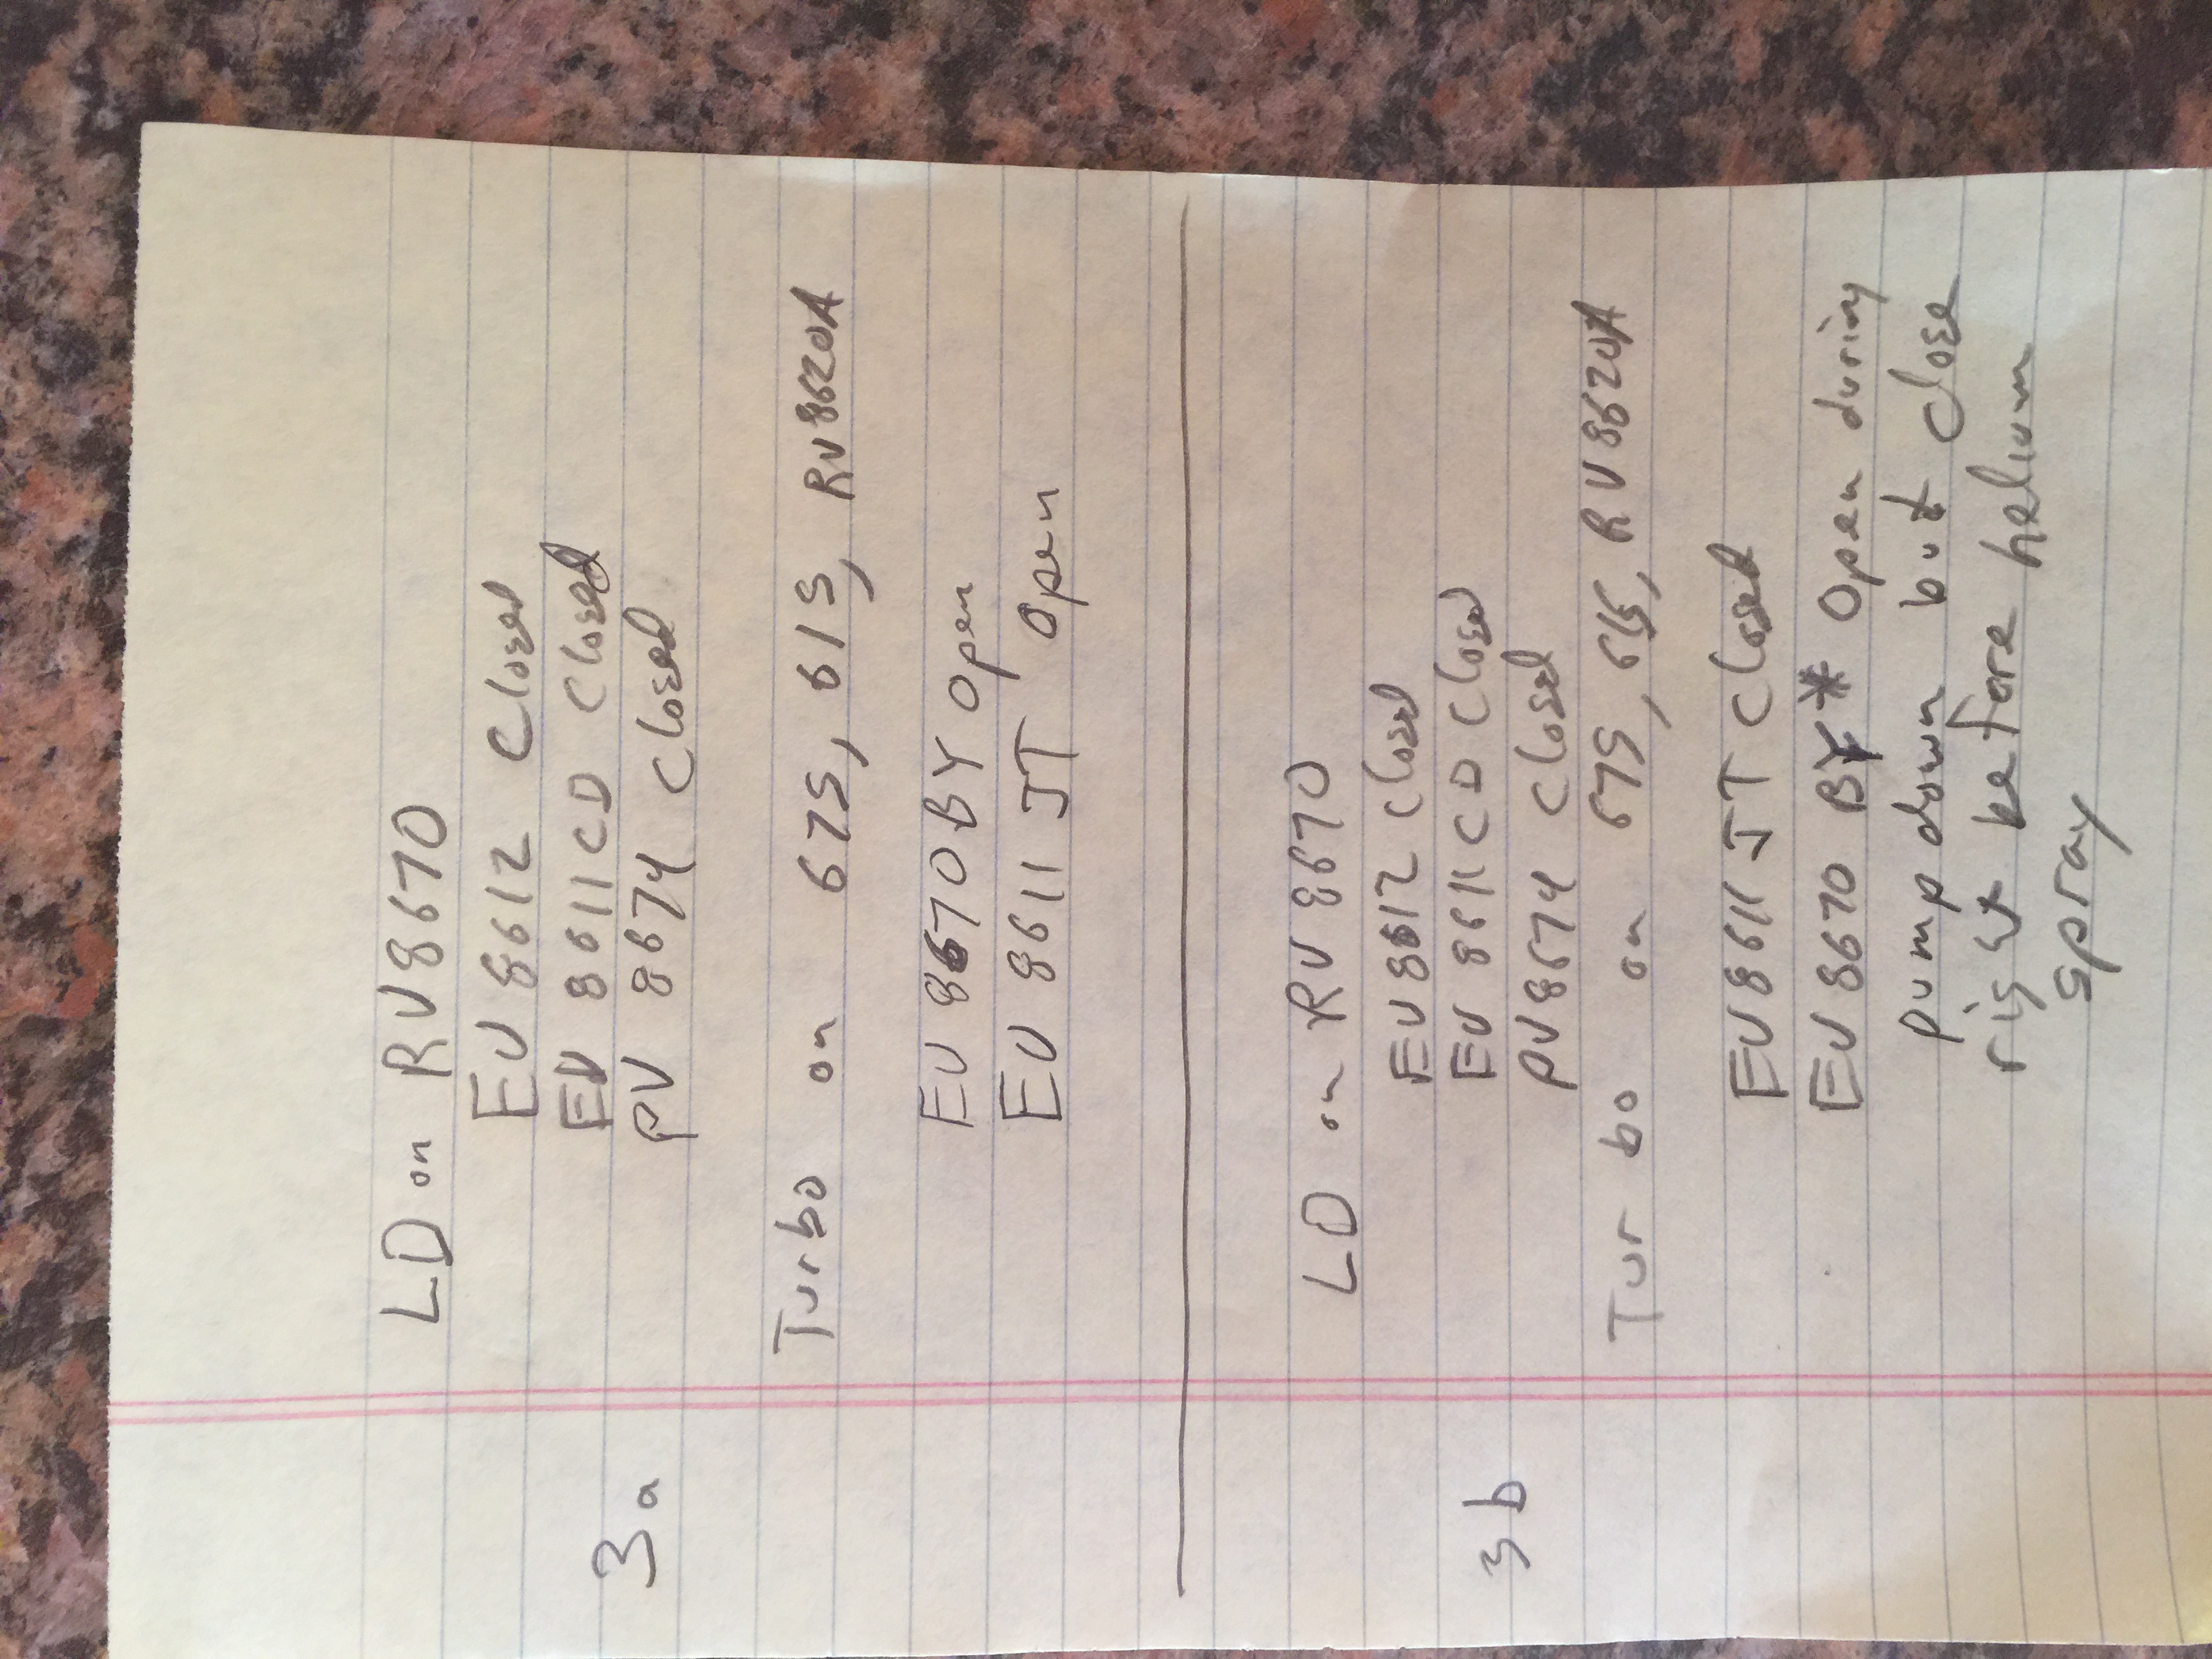 3a
LD on RV8670
EV 8612 Closed
EV 8611CD Closed
PV 8674 Closed
Turbo on 67S, 61S, RV8620A
EV 8670BY Open
EV 8611 JT Open
3b
LD on RV 8670
EV 8612 Closed
EV 8611CD Closed
PV8674 Closed
Turbo on 67S, 61S, RV8620A
EV8611 JT Closed
EV 8670 BY* Open during
pump down but close
right before helium
spray